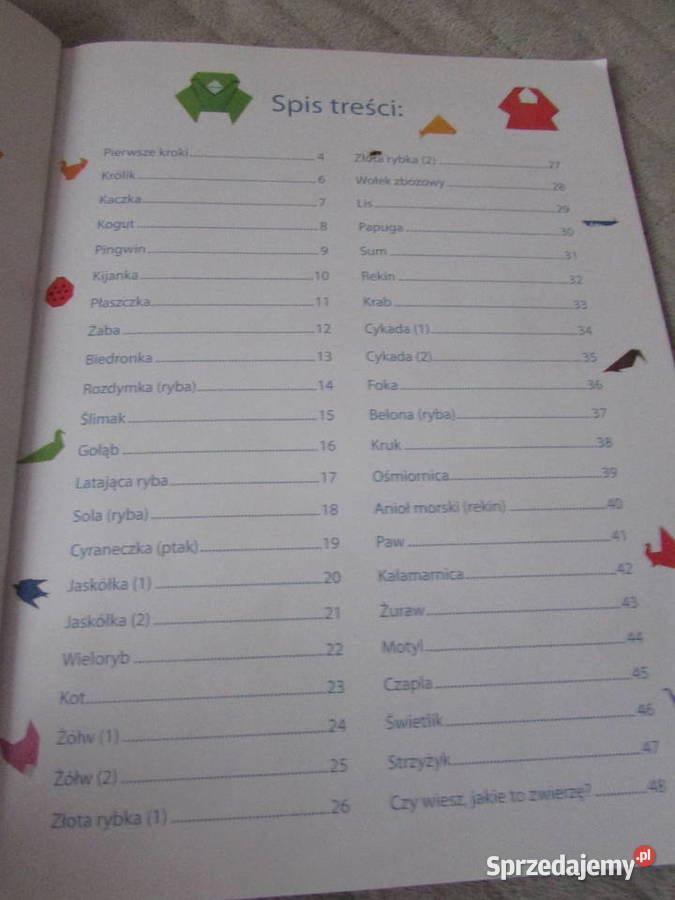 Spis treści:
Pierwsze kroki 4
Królik 6
Kaczka 7
Kogut 8
Pingwin 9
Kijanka 10
Płaszczka 11
Żaba 12
Biedronka 13
Rozdymka (ryba) 14
Ślimak 15
Gołąb 16
Latająca ryba 17
Sola (ryba) 18
Cyraneczka (ptak) 19
Jaskółka (1) 20
Jaskółka (2) 21
Wieloryb 22
Kot 23
Żółw (1) 24
Żółw (2) 25
Złota rybka (1) 26
Złota rybka (2) 27
Wołek zbożowy 28
Lis 29
Papuga 30
Sum 31
Rekin 32
Krab 33
Cykada (1) 34
Cykada (2) 35
Foka 36
Belona (ryba) 37
Kruk 38
Ośmiornica 39
Anioł morski (rekin) 40
Paw 41
Kałamarnica 42
Żuraw 43
Motyl 44
Czapla 45
Świetlik 46
Strzyżyk 47
Czy wiesz, jakie to zwierzę? 48
Sprzedajemy.pl